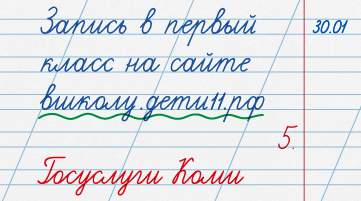 Запись в первый
30.01
класс на сайте
вшколу.дети11.рф
5.
Госуслуги Коми